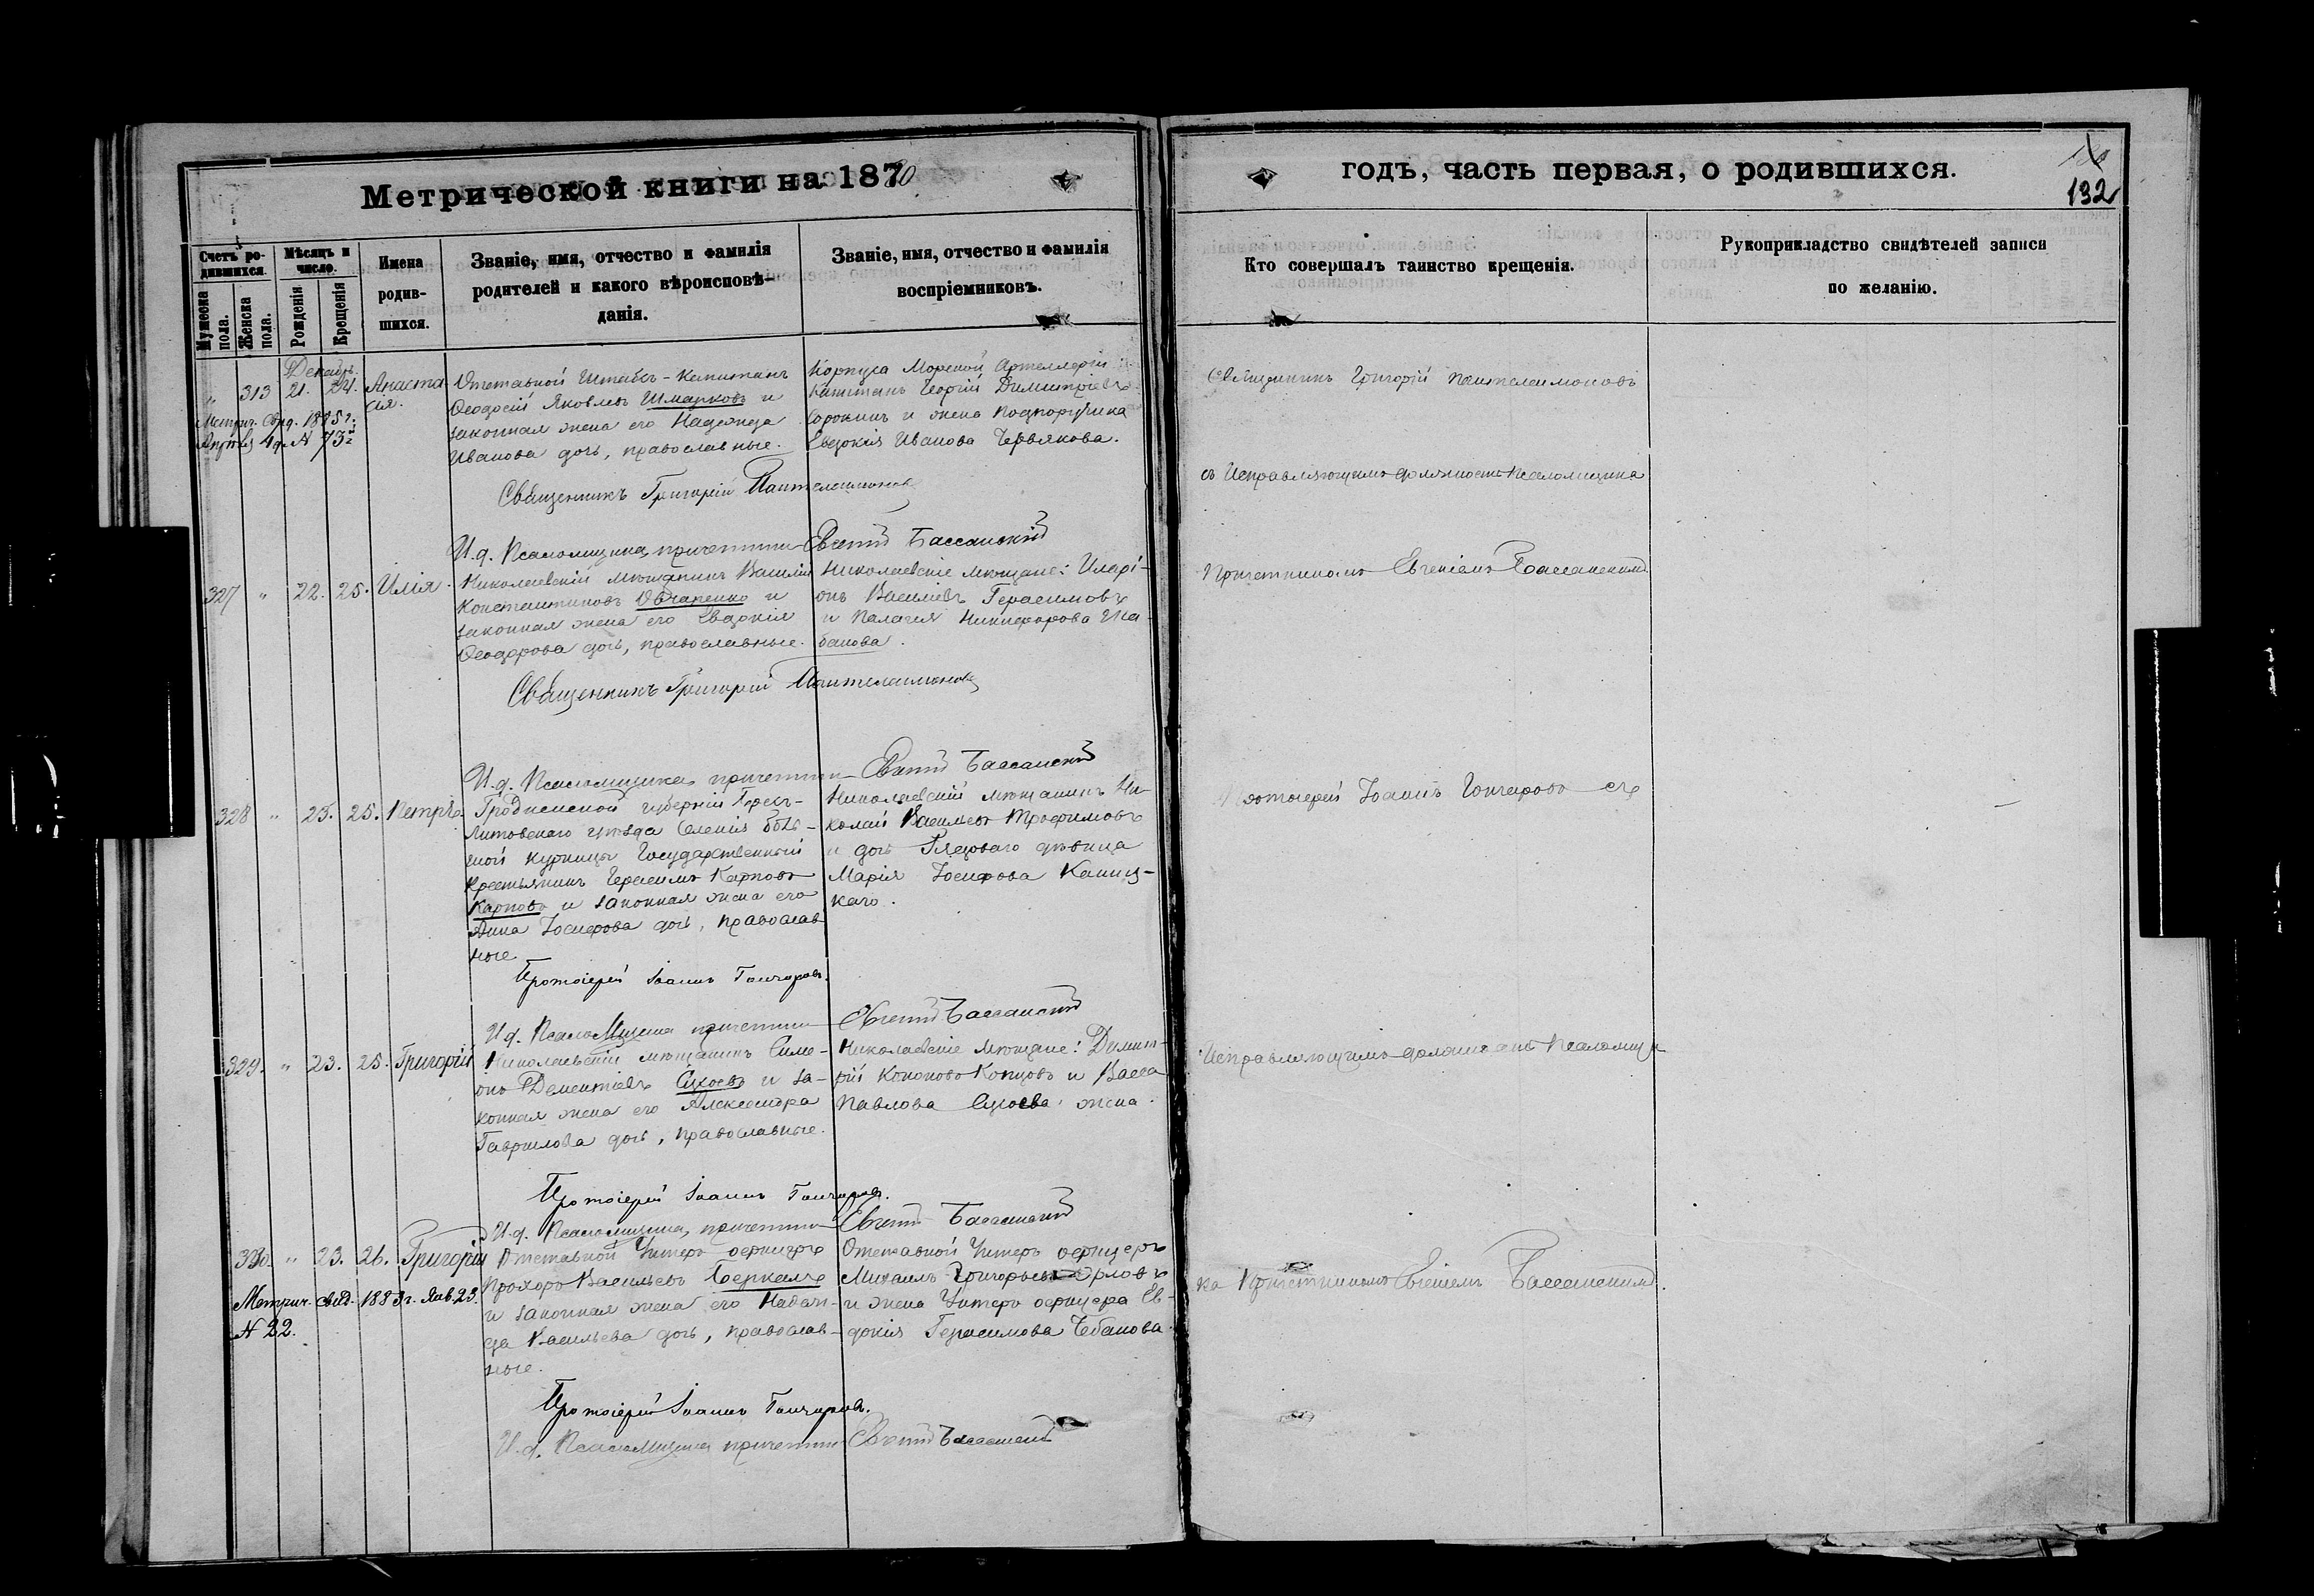 Метрической книги на 1870
годъ, часть первая, о родившихся.
132
Счетъ ро-
дившихся.
Мужеска
пола.
Женска
пола.
Мѣсяцъ и
число.
Рожденія
Крещенія
Имена
родив-
шихся.
Званіе, имя, отчество и фамилія
родителей и какого вѣроисповѣ-
данія.
Званіе, имя, отчество и фамилія
воспріемниковъ.
Кто совершалъ таинство крещенія.
Рукоприкладство свидѣтелей записи
по желанію.
Декабрь.
„ 313 21. 24. Анаста
сія.
Метрич. свид. 1885 г.
Апрѣля 4 д. № 73
Отставной Штабсъ-Капитанъ
Ѳеодосій Яковлевъ Шмарковъ и
законная жена его Надежда
Иванова дочь, православные.
Корпуса Морской Артеллеріи
Капитанъ Георгій Димитріевъ
Сорокинъ и жена подпоручика
Евдокія Иванова Червякова.
Священникъ Григорій Пантелеимоновъ
И.д. Псаломщика, причетникъ Евгеній Бассанскій
327 „ 22. 25. Илія.
Николаевскій мѣщанинъ Василій
Константиновъ Овчаренко и
законная жена его Евдокія
Ѳеодорова дочь, православные.
Николаевскіе мѣщане: Иларі-
онъ Васильевъ Герасимовъ
и Палагея Никифорова
банова.
Священникъ Григорій Пантелеимоновъ
И.д. Псаломщика, причетникъ Евгеній Бассанскій
328 „ 23. 25. Петръ
Гродненской губерніи Брестъ-
Литовскаго уѣзда селенія
Курницы Государственный
крестьянинъ Герасимъ Карповъ
Карповъ и законная жена его
Анна Іосифова дочь, православ-
ные
Николаевскій мѣщанинъ Ни-
колай Васильевъ Трофимовъ
и дочь Рядоваго дѣвица
Марія Іосифова Каниц-
каго.
Протоіерей Іоаннъ Гончаровъ.
И.д. Псаломщика причетникъ Евгеній Бассанскій
329. „ 23. 25. Григорій
Николаевскій мѣщанинъ Симе-
онъ Дементіевъ Сукоевъ и за-
конная жена его Александра
Гаврилова дочь, православные.
Николаевскіе мѣщане: Димит-
рій Кононовъ Копцовъ и Васса
Павлова Сукоева жена.
Протоіерей Іоаннъ Гончаровъ.
И.д. Псаломщика, причетникъ Евгеній Бассанскій
330. „ 23. 26. Григорій
Метрич. свид. 1883 г. Янв. 23.
№ 22.
Отставной Унтеръ офицеръ
Прохоръ Васильевъ Беркалъ
и законная жена его Надеж-
да Васильева дочь, православ-
ные.
Отставной Унтеръ офицеръ
Михаилъ Григорьевъ Орловъ
и жена Унтеръ офицера Ев-
докія Герасимова Чебанова.
Протоіерей Іоаннъ Гончаровъ.
И.д. Псаломщика причетникъ Евгеній Бассанскій
Священникъ Григорій Пантелеимоновъ
съ Исправляющимъ должность Псаломщика
Причетникомъ Евгеніемъ Бассанскимъ.
Протоіерей Іоаннъ Гончаровъ съ
Исправляющимъ должность Псаломщи
ка Причетникомъ Евгеніемъ Бассанскимъ.